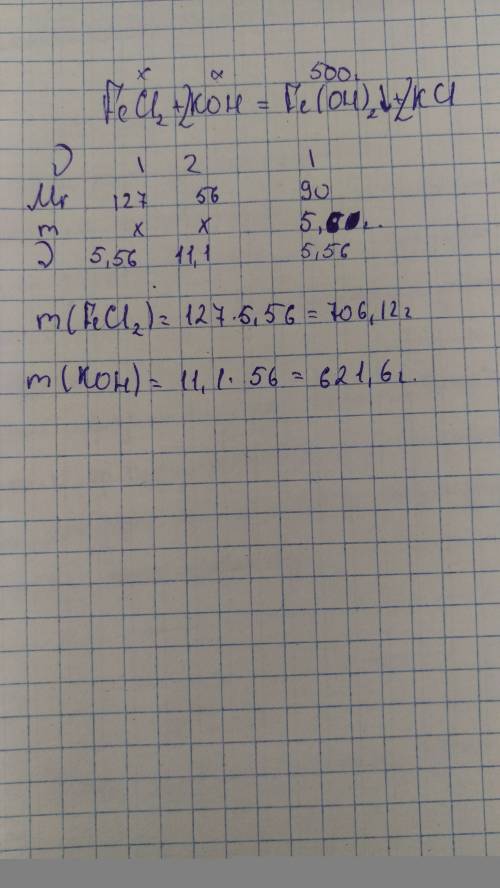 x x 500г
FeCl₂ + 2KOH = Fe(OH)₂↓ + 2KCl
ν 1 2 1
Mr 127 56 90
m x x 5,
ν 5,56 11,1 5,56
m(FeCl₂) = 127·5,56 = 706,12г
m(KOH) = 11,1·56 = 621,6г.